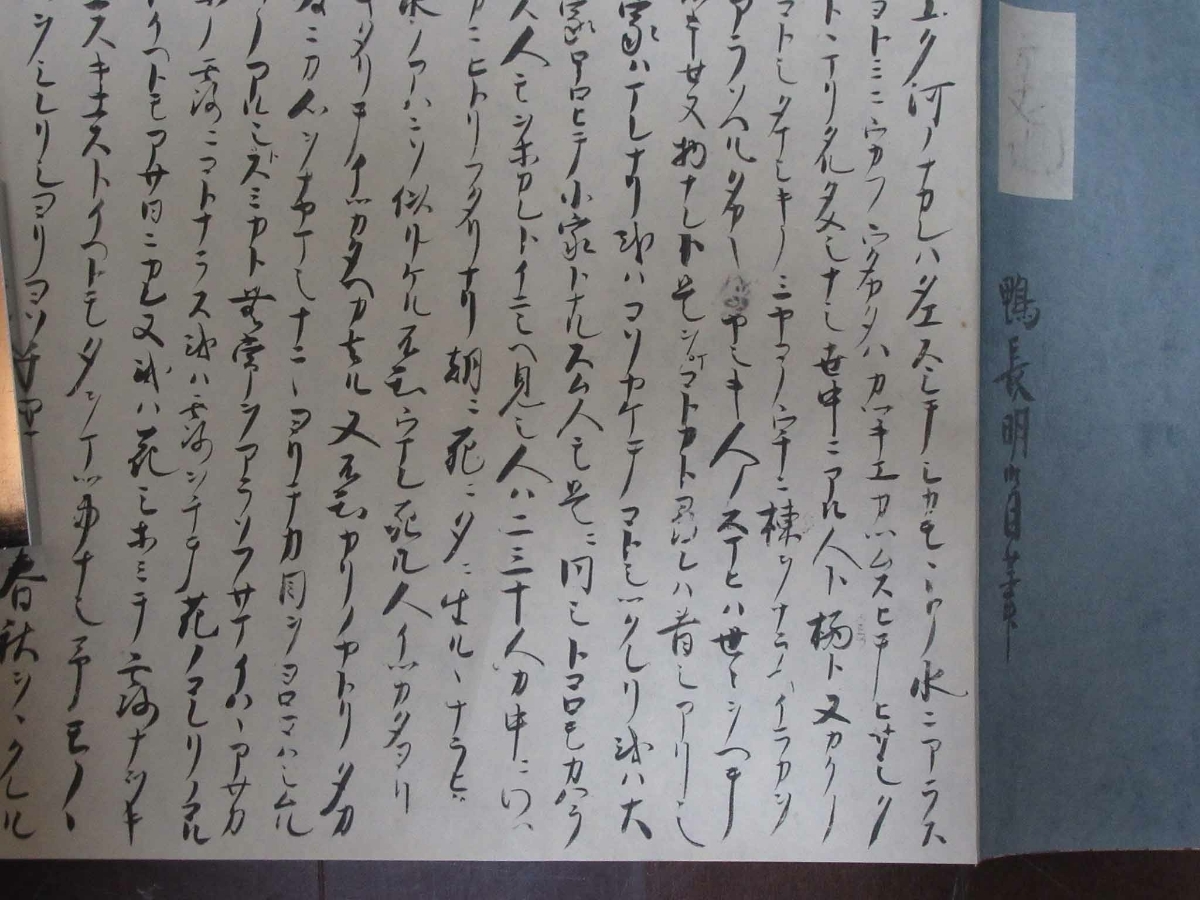 鴨長明
ユク河ノナカレハタエスシテシカモヽトノ水ニアラス
ヨトミニウカフウタカタハカツキエカツムスヒテヒサシク
トヽマリタルタメシナシ世中ニアル人ト栖ト又カクノ
コトシタマシキノミヤコノウチニ棟ヲナラヘイラカヲ
アラソヘルタカキイヤシキ人ノスマヒハ世々ヲヘテ
ツキセヌ物ナレト是ヲマコトカト尋レハ昔シアリシ
家ハマレナリ或ハコソヤケテコトシツクレリ或ハ大
家ホロヒテ小家トナルスム人モ是ニ同シトコロモカハラ
ス人モヲホカレトイニシヘ見シ人ハ二三十人カ中ニワツ
カニヒトリフタリナリ朝ニ死ニ夕ニ生ルヽナラヒ
水ノアハニソ似リケル不知ウマレ死ル人イツカタヨリ
キタリテイツカタヘカ去ル又不知カリノヤトリタカ
為ニカ心ヲナヤマシナニヽヨリテカ目ヲヨロコハシムル
ノアルシトスミカト無常ヲアラソフサマイハヽアサカ
ホノ露ニコトナラス或ハ露ヲチテ花ノコレリノコル
トイヘトモアサ日ニカレヌ或ハ花シホミテ露ナヲキ
エスキエストイヘトモ夕ヲマツ事ナシ予モノヽ
ヲシレリシヨリヨソチ
春秋ヲヽクレル